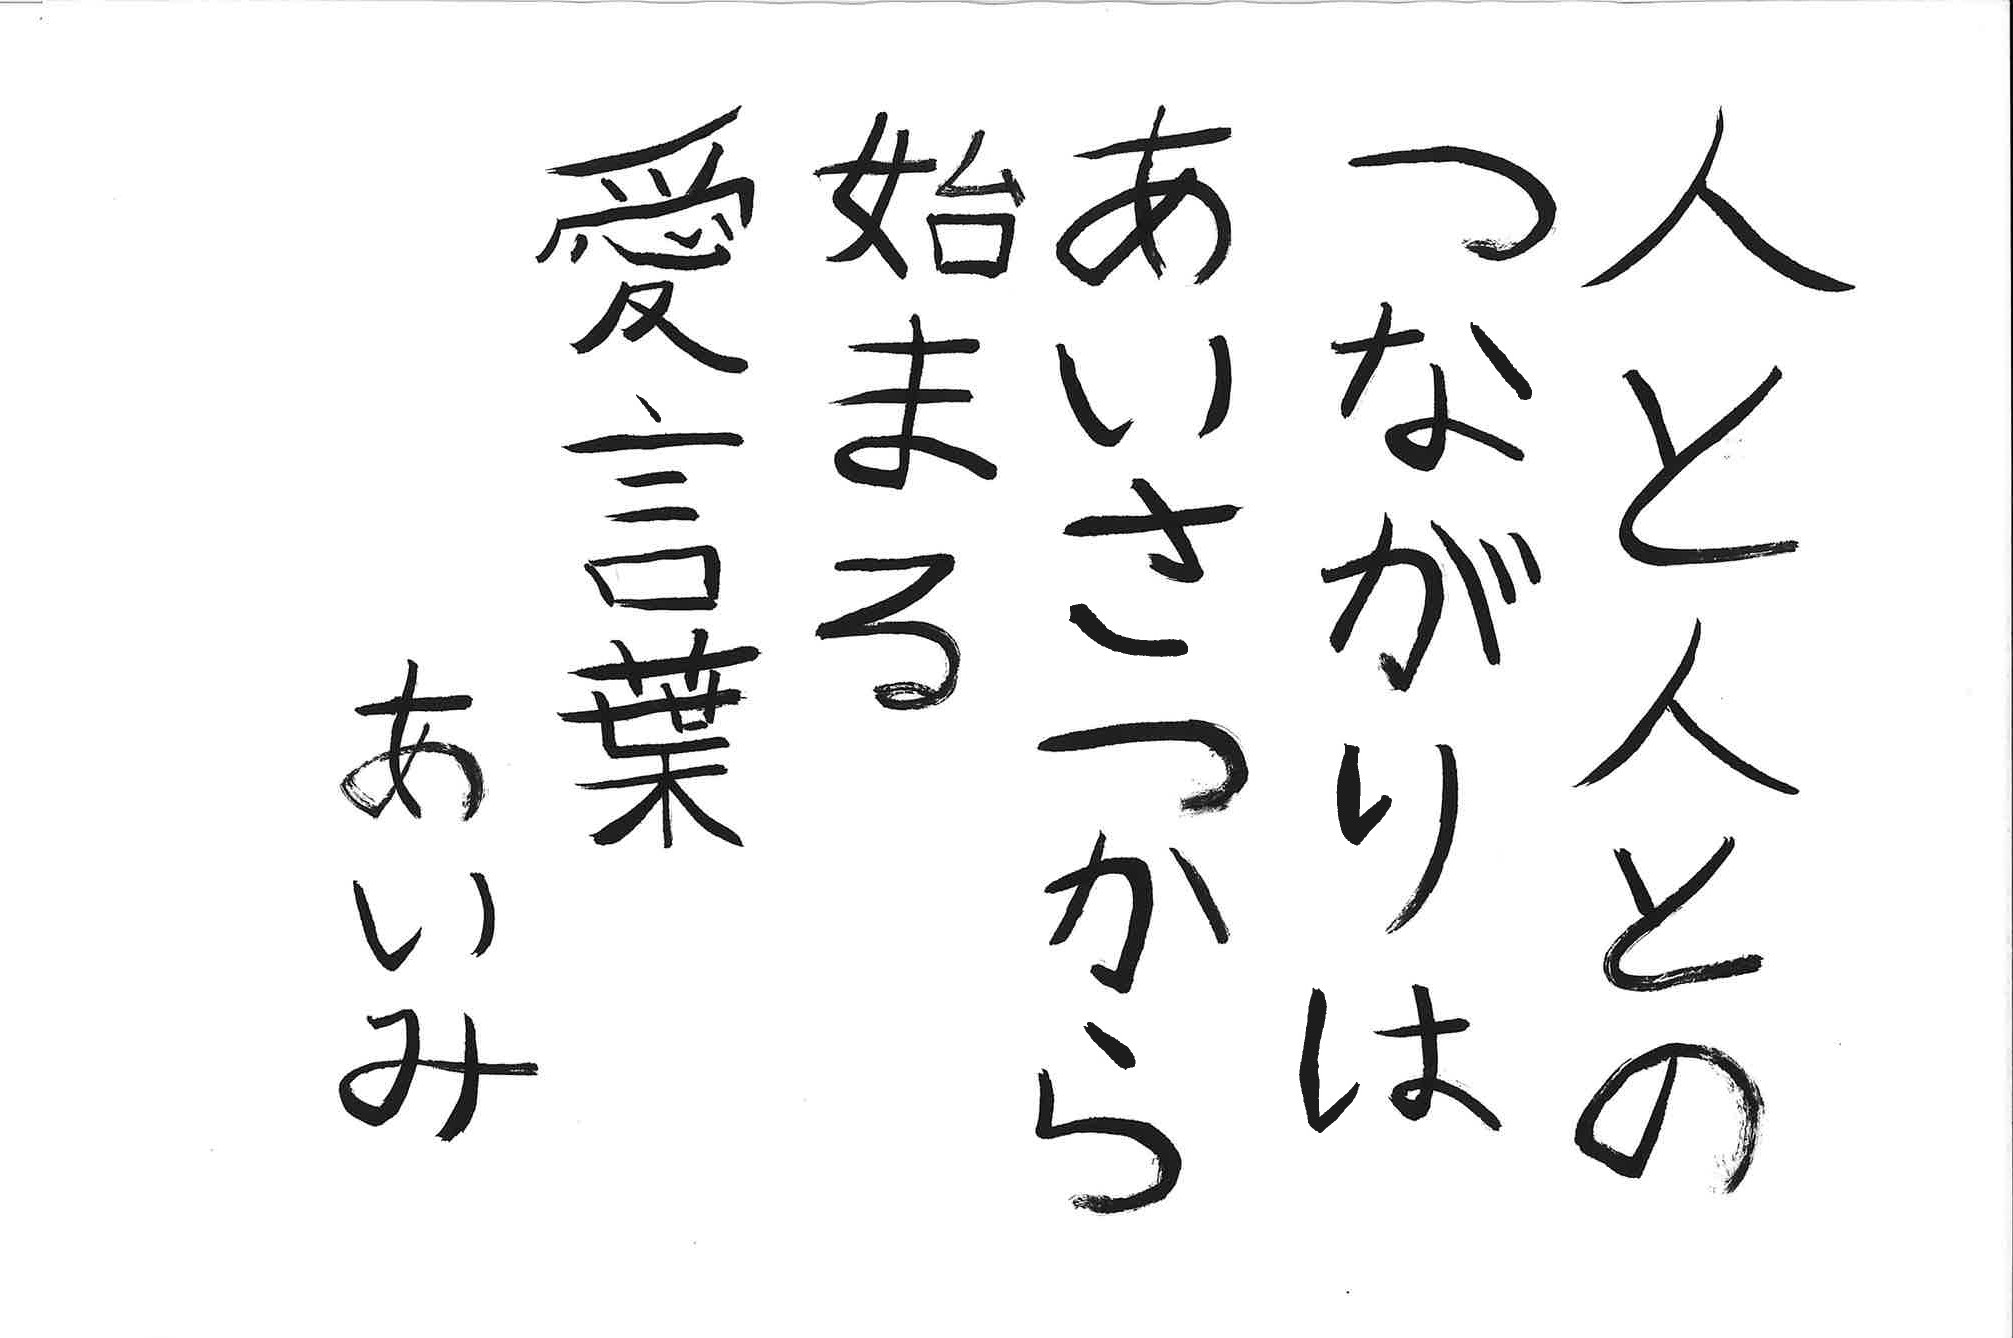 人と人との
つながりは
あいさつから
始まる
愛言葉
あいみ